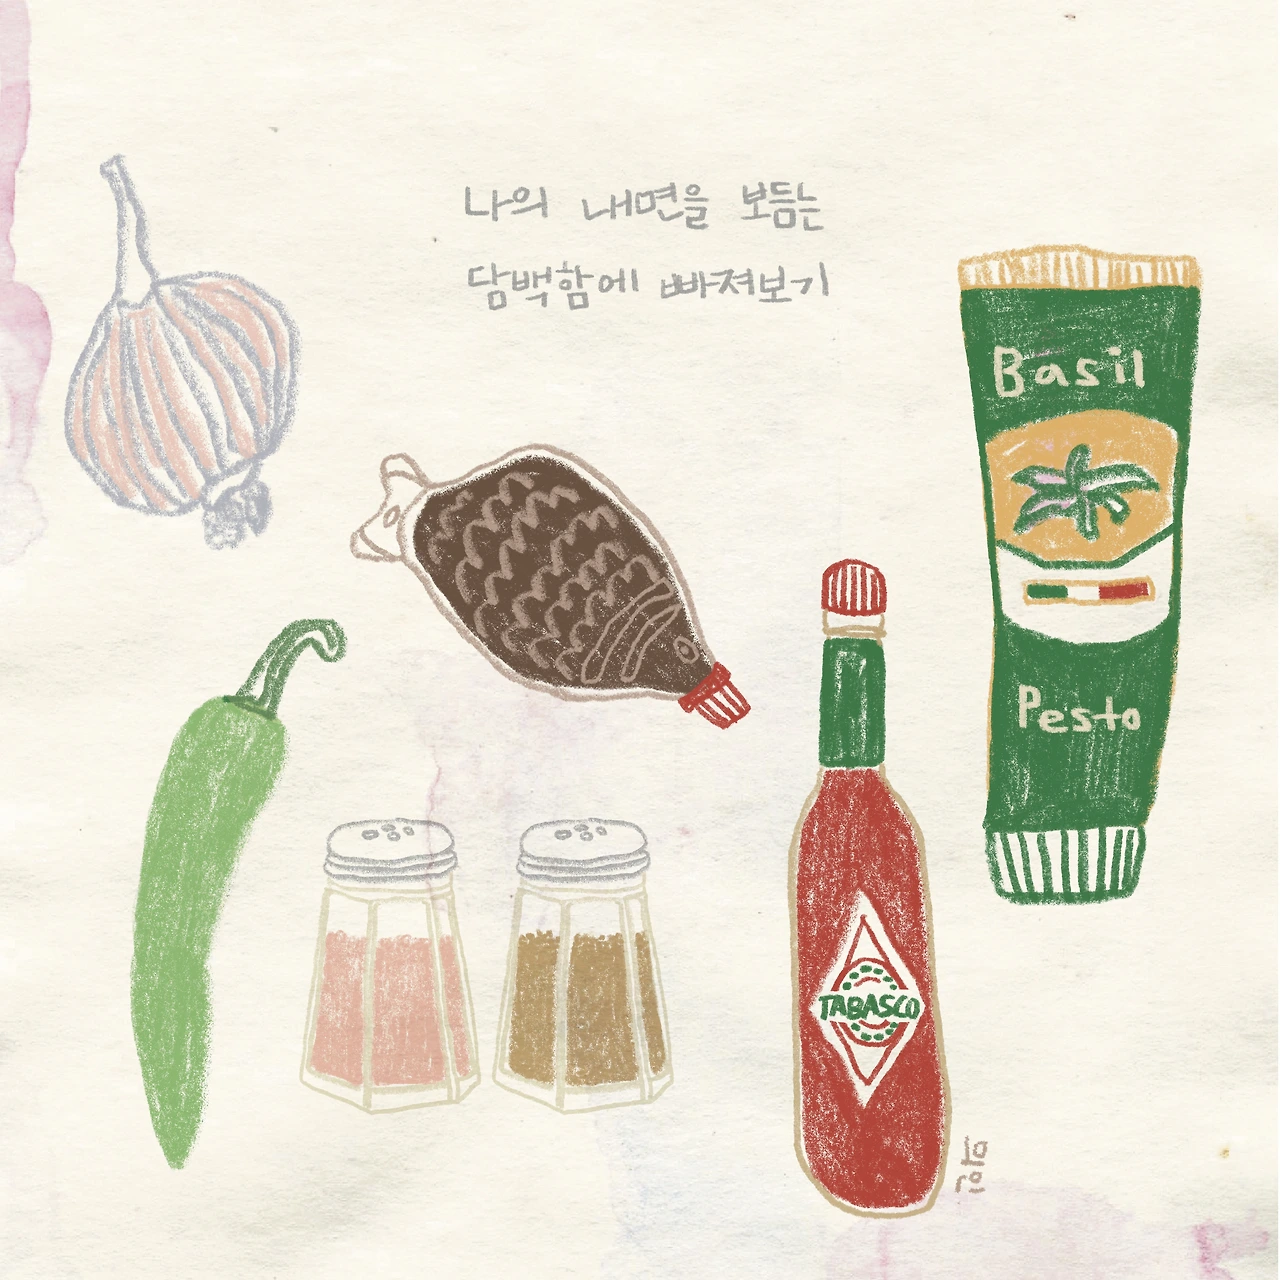 나의 내면을 보듬는
담백함에 빠져보기
Basil
Pesto
TABASCO